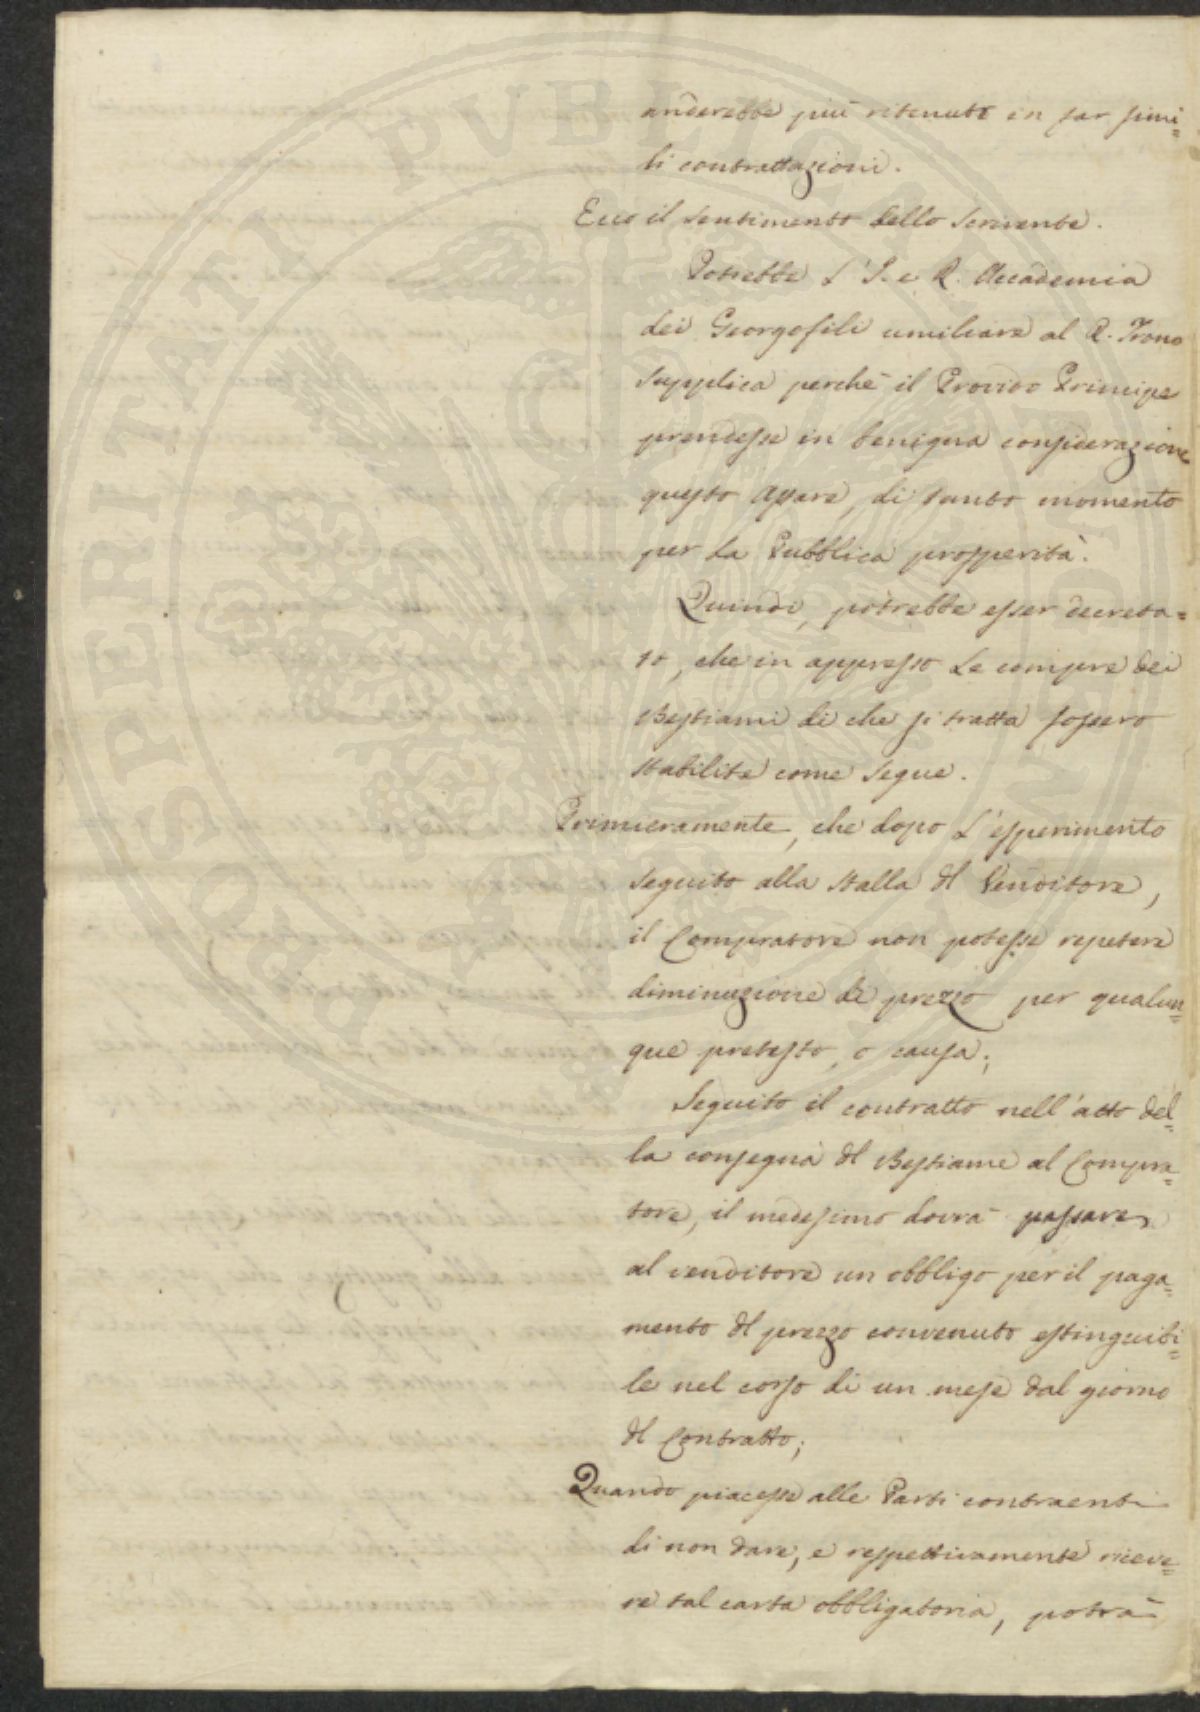 anderebbe più ritenuto in far simi=
li contrattazioni.
Ecco il sentimento dello Scrivente.
Potrebbe L'I. e R. Accademia
dei Georgofili umiliare al R. Trono
supplica perchè il Provido Principe
prendesse in benigna considerazione
questo affare, di tanto momento
per la Pubblica prosperità.
Quindi, potrebbe esser decreta=
to, che in appresso Le compre dei
Bestiami di che si tratta fossero
stabilite come segue.
Primieramente, che dopo L'esperimento
seguito alla stalla dl Venditore,
il Compratore non potesse repetere
diminuzione di prezzo per qualun=
que pretesto, o causa;
Seguito il contratto nell'atto del=
la consegna dl Bestiame al Compra=
tore, il medesimo dovrà passare
al venditore un obbligo per il paga=
mento dl prezzo convenuto estinguibi=
le nel corso di un mese dal giorno
dl Contratto;
Quando piacesse alle Parti contraenti
di non dare, e respettivamente riceve=
re tal carta obbligatoria, potrà
PROSPERITATI PUBLICAE AUGENDAE